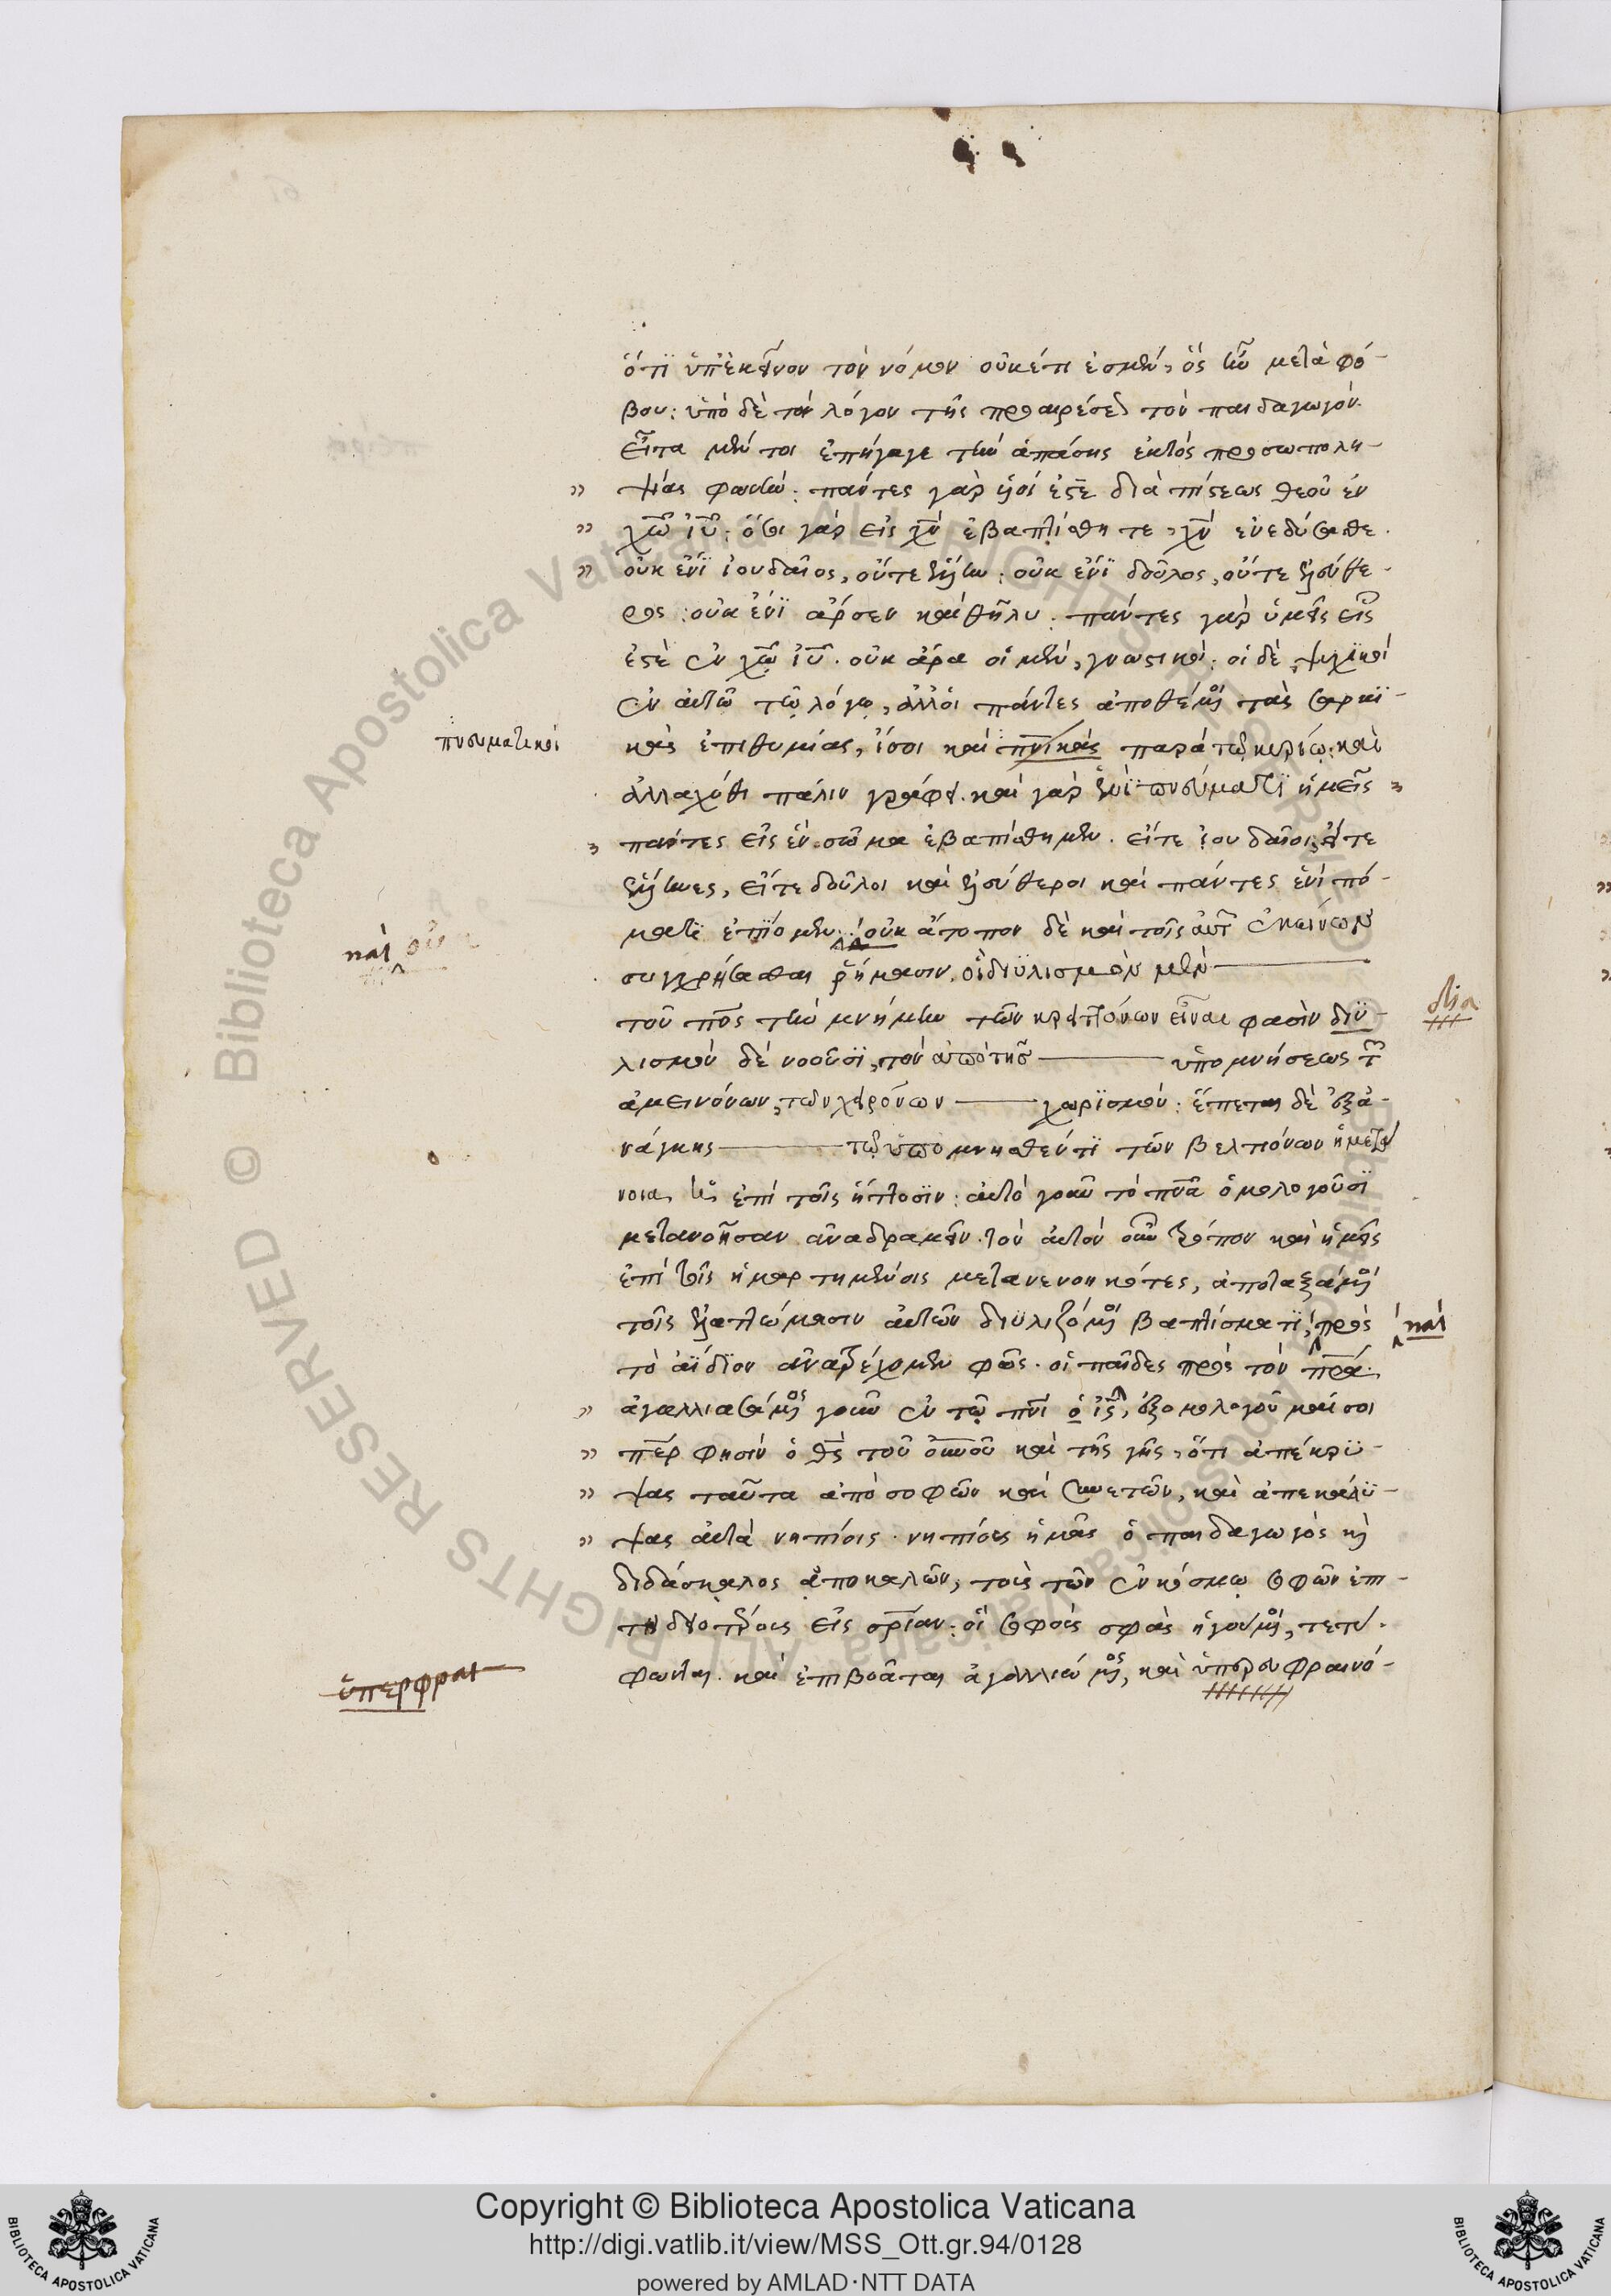 ὅτι ὑπ' ἐκεῖνον τὸν νόμον οὐκέτι ἐσμέν, ὃς ἦν μετὰ φό-
βου: ὑπὸ δὲ τὸν λόγον τῆς προαιρέσεως τὸν παιδαγωγόν.
Εἶτα μέν τοι ἐπήγαγε τὴν ἁπάσης ἐκτὸς προσωπολη-
ψίας φωνήν: πάντες γὰρ υἱοί ἐστε διὰ πίστεως θεοῦ ἐν
χῶ ἰῦ: ὅσοι γὰρ εἰς χν ἐβαπτίσθητε, χν ἐνεδύσασθε.
οὐκ ἔνι ἰουδαῖος, οὔτε ἕλλην: οὐκ ἔνι δοῦλος, οὔτε ἐλεύθε-
ρος: οὐκ ἔνι ἄρσεν καὶ θῆλυ: πάντες γὰρ ὑμεῖς εἷς
ἐστὲ ἐν χῶ ἰῦ. οὐκ ἄρα οἱ μὲν, γνωστικοί: οἱ δὲ, ψυχικοὶ
ἐν αὐτῷ τῷ λόγῳ, ἀλλ' οἱ πάντες ἀποθέμενοι τὰς σαρκι-
πνευματικοί
κὰς ἐπιθυμίας, ἴσοι καὶ πνικὰς παρὰ τῷ κυρίῳ: καὶ
ἀλλαχόθι πάλιν γράφει. καὶ γὰρ ἐνὶ πνεύματι ἡμεῖς
πάντες εἰς ἓν σῶμα ἐβαπτίσθημεν. εἴτε ἰουδαῖοι, εἴτε
ἕλληνες, εἴτε δοῦλοι καὶ ἐλεύθεροι καὶ πάντες ἓν πό-
καὶ οὐκ
ματι ἐπίομεν: οὐκ ἄτοπον δὲ καὶ τοῖς αὐτ ἐκείνων
συγχρήσασθαι ῥήμασιν. οἳ διϋλισμὸν μὲν
τοῦ πνς τὴν μνήμην τῶν κρειττόνων εἶναι φασὶν διϋ-
δια
λισμὸν δὲ νοοῦσι, τὸν ἀπὸ τῆς ὑπομνήσεως τῶν
ἀμεινόνων, τῶν χειρόνων χωρισμόν: ἕπεται δὲ ἐξ ἀ-
νάγκης τῷ ὑπομνησθέντι τῶν βελτιόνων ἡ μετά
νοια, ἡ ἐπὶ τοῖς ἥττοσιν: αὐτὸ γοῦν τὸ πνα ὁμολογοῦσι
μετανοῆσαν ἀναδραμεῖν. τὸν αὐτὸν οὖν τρόπον καὶ ἡμεῖς
ἐπὶ τοῖς ἡμαρτημένοις μετανενοηκότες, ἀποταξάμενοι
τοῖς ἐλαττώμασιν αὐτῶν διϋλιζόμενοι βαπτίσματι, πρὸς
καὶ
τὸ ἀΐδιον ἀνατρέχομεν φῶς. οἱ παῖδες πρὸς τὸν πρα.
ἀγαλλιασάμενος γοῦν ἐν τῷ πνι ὁ ἰς, ἐξομολογοῦμαί σοι
περ φησὶν ὁ θς τοῦ οὐνοῦ καὶ τῆς γῆς, ὅτι ἀπέκρυ-
ψας ταῦτα ἀπὸ σοφῶν καὶ συνετῶν, καὶ ἀπεκάλυ-
ψας αὐτὰ νηπίοις. νηπίους ἡμᾶς ὁ παιδαγωγὸς καὶ
διδάσκαλος ἀποκαλῶν, τοὺς τῶν ἐν κόσμῳ σοφῶν ἐπι-
τηδειοτέρους εἰς σρίαν: οἳ σοφοὺς σφᾶς ἡγούμενοι, τετύ-
ὑπερφραι
φωνται. καὶ ἐπιβοᾶται ἀγαλλιώμενος, καὶ ὑπερευφραινό-
Copyright © Biblioteca Apostolica Vaticana
http://digi.vatlib.it/view/MSS_Ott.gr.94/0128
powered by AMLAD·NTT DATA